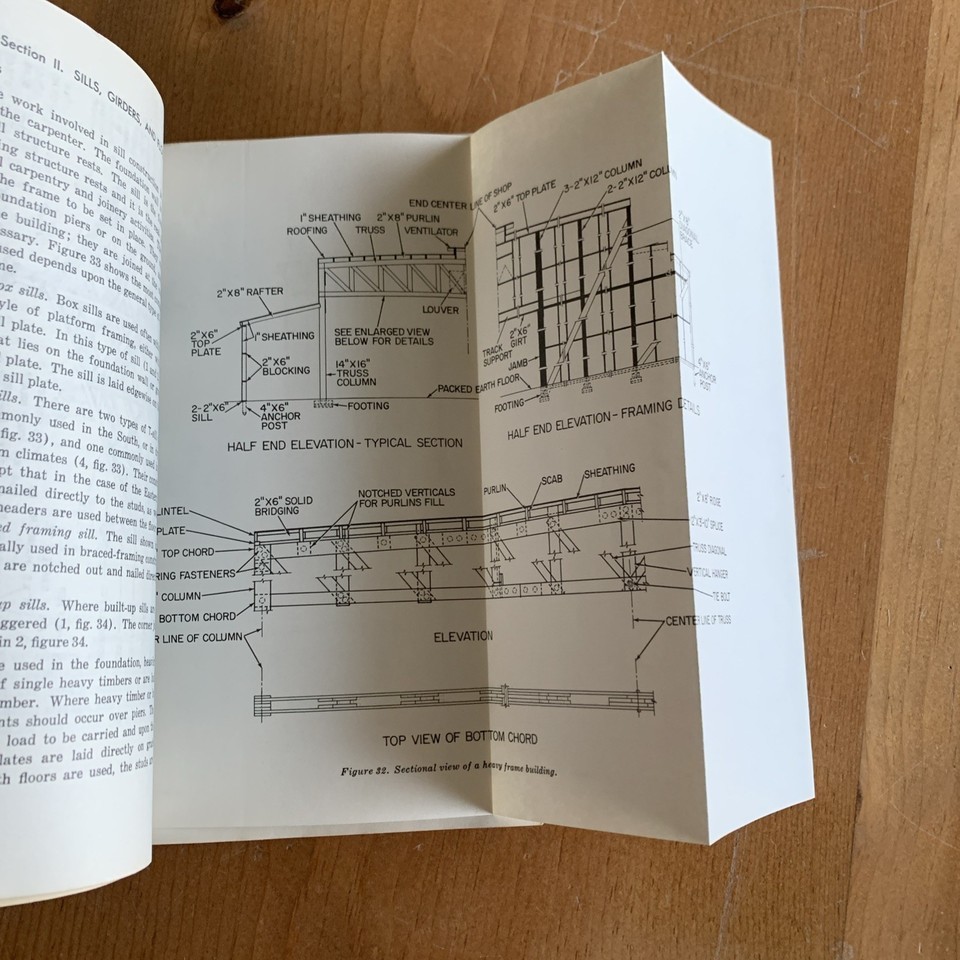 Section II. SILLS, GIRDERS, AND
work involved in sill construction
the carpenter. The foundation
structure rests. The sill is the
ing structure rests and it is the
carpentry and joinery activities.
the frame to be set in place. They
foundation piers or on the ground,
building; they are joined at the
essary. Figure 33 shows the most
used depends upon the general type
sills. Box sills are used often
style of platform framing, either
plate. In this type of sill (1 and
that lies on the foundation wall or
plate. The sill is laid edgewise on
sill plate.
There are two types of
commonly used in the South,
fig. 33), and one commonly used
climates (4, fig. 33). Their
that in the case of the Eastern
nailed directly to the studs, as
headers are used between the
framing sill. The sill shown
used in braced-framing
are notched out and nailed
sills. Where built-up sills are
(1, fig. 34). The corner
in 2, figure 34.
used in the foundation, heavy
of single heavy timbers or are
Where heavy timber or
should occur over piers. The
load to be carried and upon
are laid directly on
floors are used, the studs
END CENTER LINE OF SHOP
1" SHEATHING
2"X8" PURLIN
ROOFING
TRUSS
VENTILATOR
2"X8" RAFTER
LOUVER
2"X6"
TOP
PLATE
1" SHEATHING
SEE ENLARGED VIEW
BELOW FOR DETAILS
2"X6"
BLOCKING
14"X16"
TRUSS
COLUMN
PACKED EARTH FLOOR
2-2"X6"
SILL
4"X6"
ANCHOR
POST
FOOTING
HALF END ELEVATION-TYPICAL SECTION
2"X6" TOP PLATE
3-2"X12" COLUMN
2-2"X12"
TRACK
SUPPORT
2"X6"
GIRT
JAMB
FOOTING
ANCHOR
POST
HALF END ELEVATION-FRAMING DETAILS
2"X6" SOLID
BRIDGING
NOTCHED VERTICALS
FOR PURLINS FILL
PURLIN
SCAB
SHEATHING
LINTEL
PLATE
TOP CHORD
RING FASTENERS
COLUMN
BOTTOM CHORD
LINE OF COLUMN
2"X8" RIDGE
SPLICE
TRUSS DIAGONAL
VERTICAL HANGER
TIE BOLT
CENTER LINE OF TRUSS
ELEVATION
TOP VIEW OF BOTTOM CHORD
Figure 32. Sectional view of a heavy frame building.